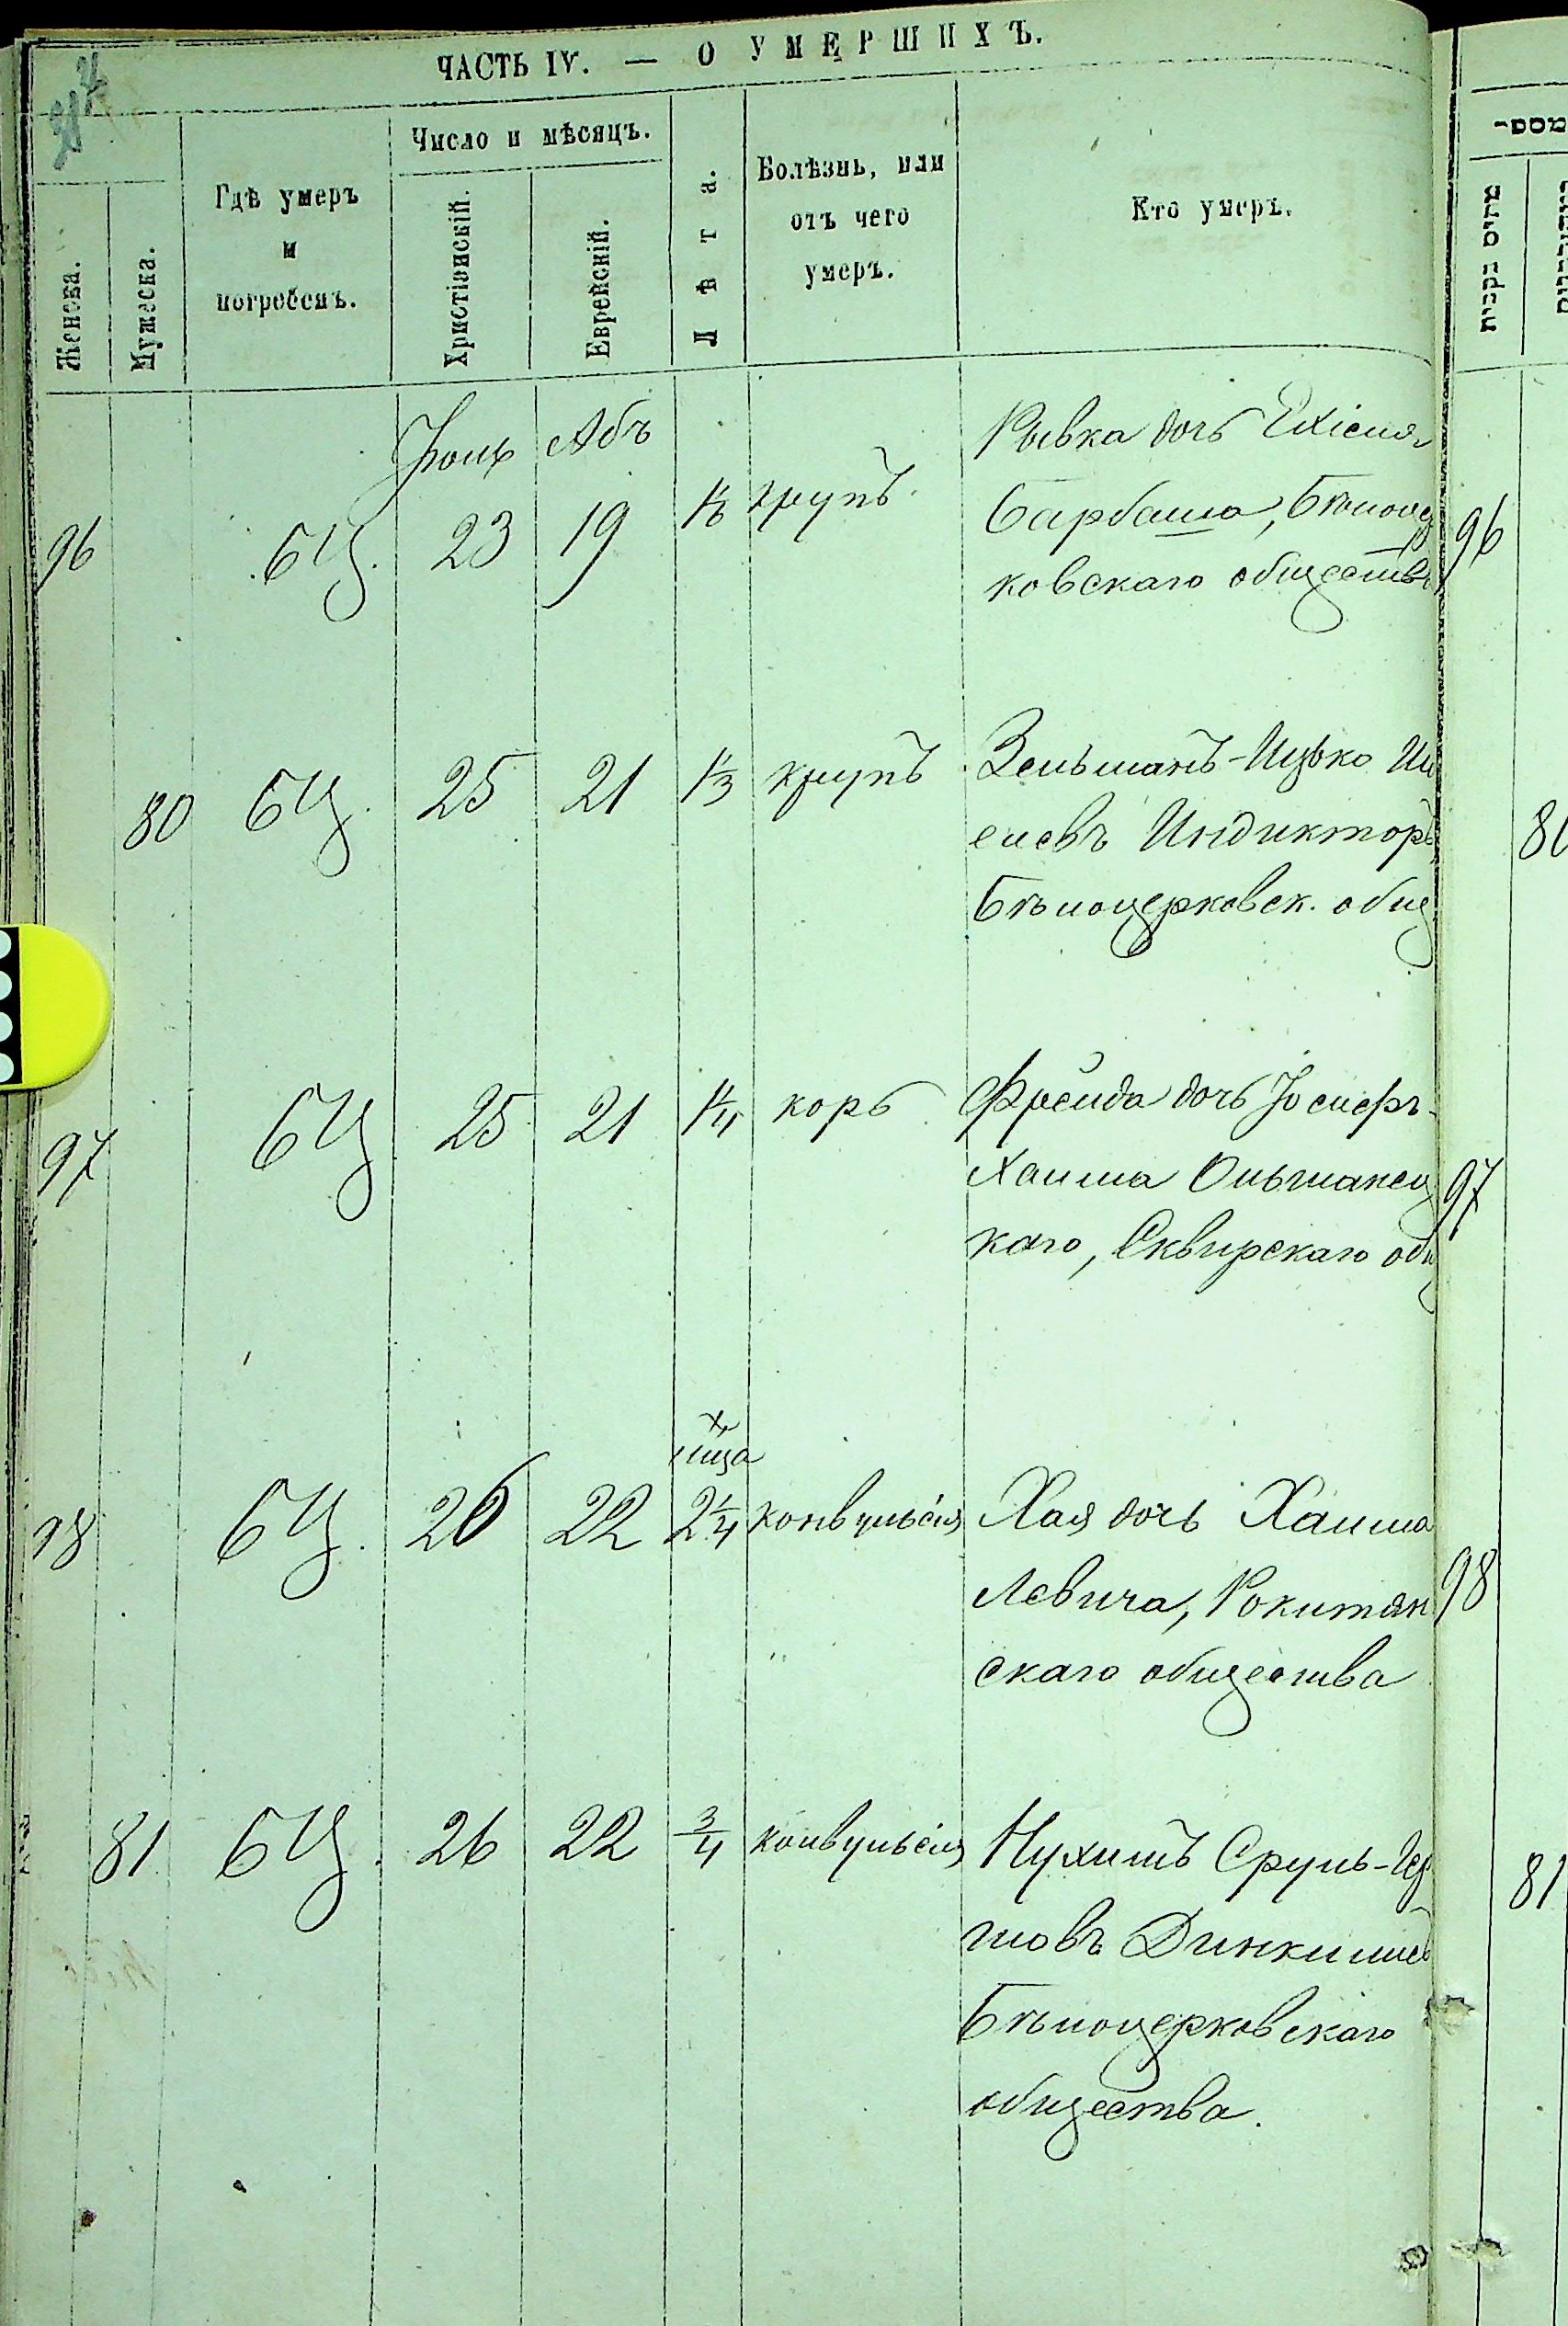 ЧАСТЬ IV. — О УМЕРШИХЪ.
Женска.
Мужеска.
Гдѣ умеръ
и
погребенъ.
Число и мѣсяцъ.
Христіанскій.
Еврейскій.
Лѣта.
Болѣзнь, или
отъ чего
умеръ.
Кто умеръ.
Іюль Абъ
96 БЦ. 23 19 крупъ Рывка дочь Ехіеля
Барбаша, Бѣлоцер
ковскаго общества
96
80 БЦ. 25 21 1/3 крупъ Зельманъ-Ицько
елевъ Индикторъ,
Бѣлоцерковск. общ
97 БЦ 25 21 1/4 корь Фрейда дочь Іосифъ-
Хаима Ольшанец
каго, Сквирскаго общ
97
98 БЦ. 26 22 2 1/4 конвульсія Хая дочь Хаима
Левича, Рокитян
скаго общества
98
81 БЦ. 26 22 3/4 конвульсія Нухимъ Сруль-
Бѣлоцерковскаго
общества.
81